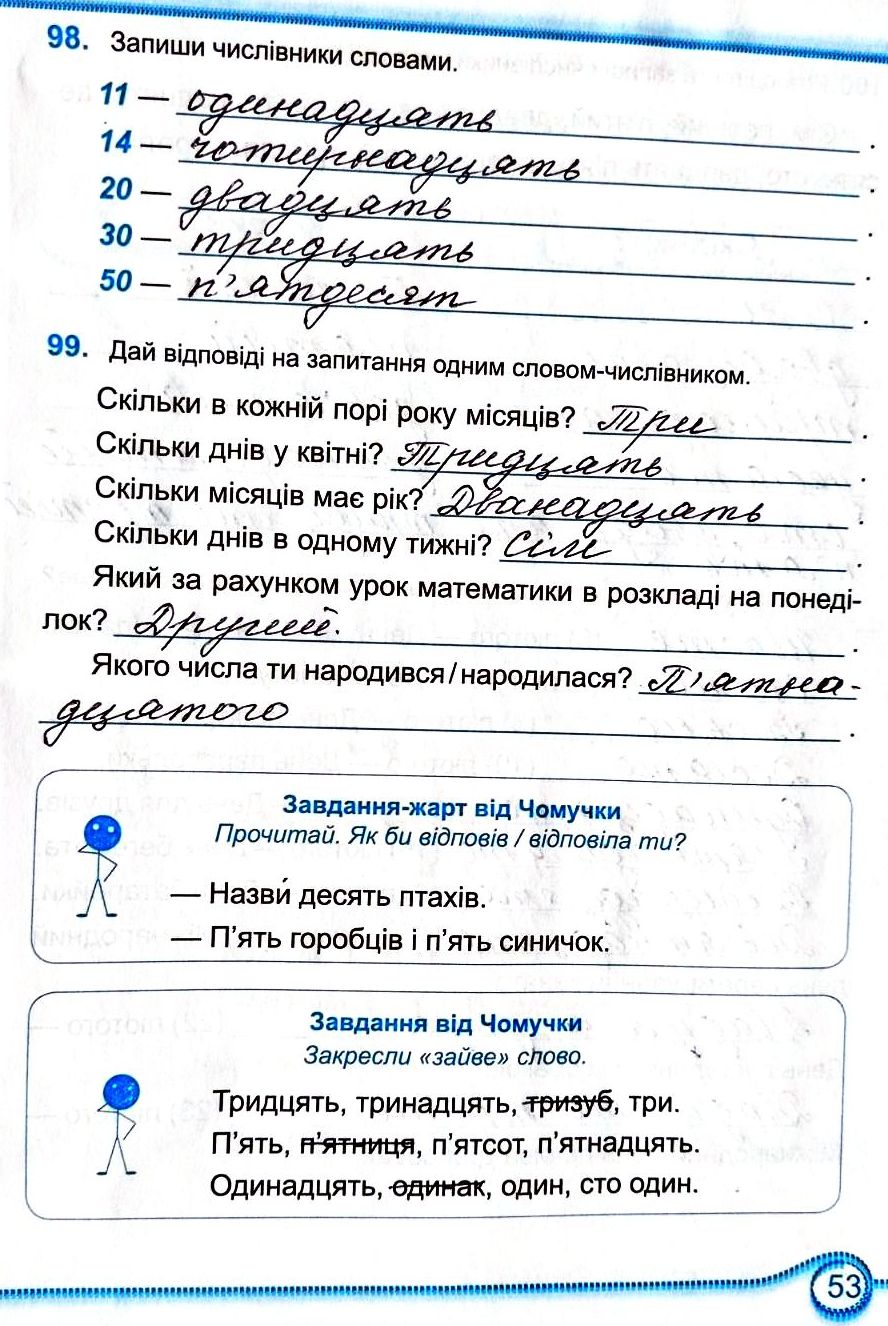 98. Запиши числівники словами.
11 — одинадцять.
14 — чотирнадцять.
20 — двадцять.
30 — тридцять.
50 — п'ятдесят.
99. Дай відповіді на запитання одним словом-числівником.
Скільки в кожній порі року місяців? Три.
Скільки днів у квітні? Тридцять.
Скільки місяців має рік? Дванадцять.
Скільки днів в одному тижні? Сім.
Який за рахунком урок математики в розкладі на понеді-
лок? Другий. .
Якого числа ти народився / народилася? П'ятна-
дцятого.
Завдання-жарт від Чомучки
Прочитай. Як би відповів / відповіла ти?
— Назви́ десять птахів.
— П'ять горобців і п'ять синичок.
Завдання від Чомучки
Закресли «зайве» слово.
Тридцять, тринадцять, тризуб, три.
П'ять, п'ятниця, п'ятсот, п'ятнадцять.
Одинадцять, одинак, один, сто один.
53